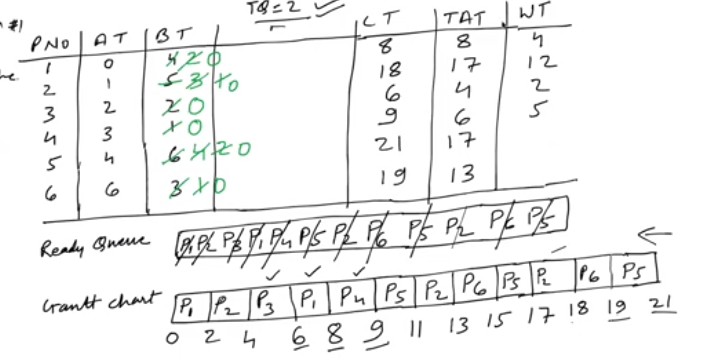 #1 TQ=2
PNO AT BT CT TAT WT
1 0 4 2 0 8 8 4
2 1 5 3 1 0 18 17 12
3 2 2 0 6 4 2
4 3 1 0 9 6 5
5 4 6 4 2 0 21 17
6 6 3 1 0 19 13
Ready Queue P1 P2 P3 P1 P4 P5 P2 P6 P5 P2 P6 P5
Grantt chart P1 P2 P3 P1 P4 P5 P2 P6 P5 P2 P6 P5
0 2 4 6 8 9 11 13 15 17 18 19 21